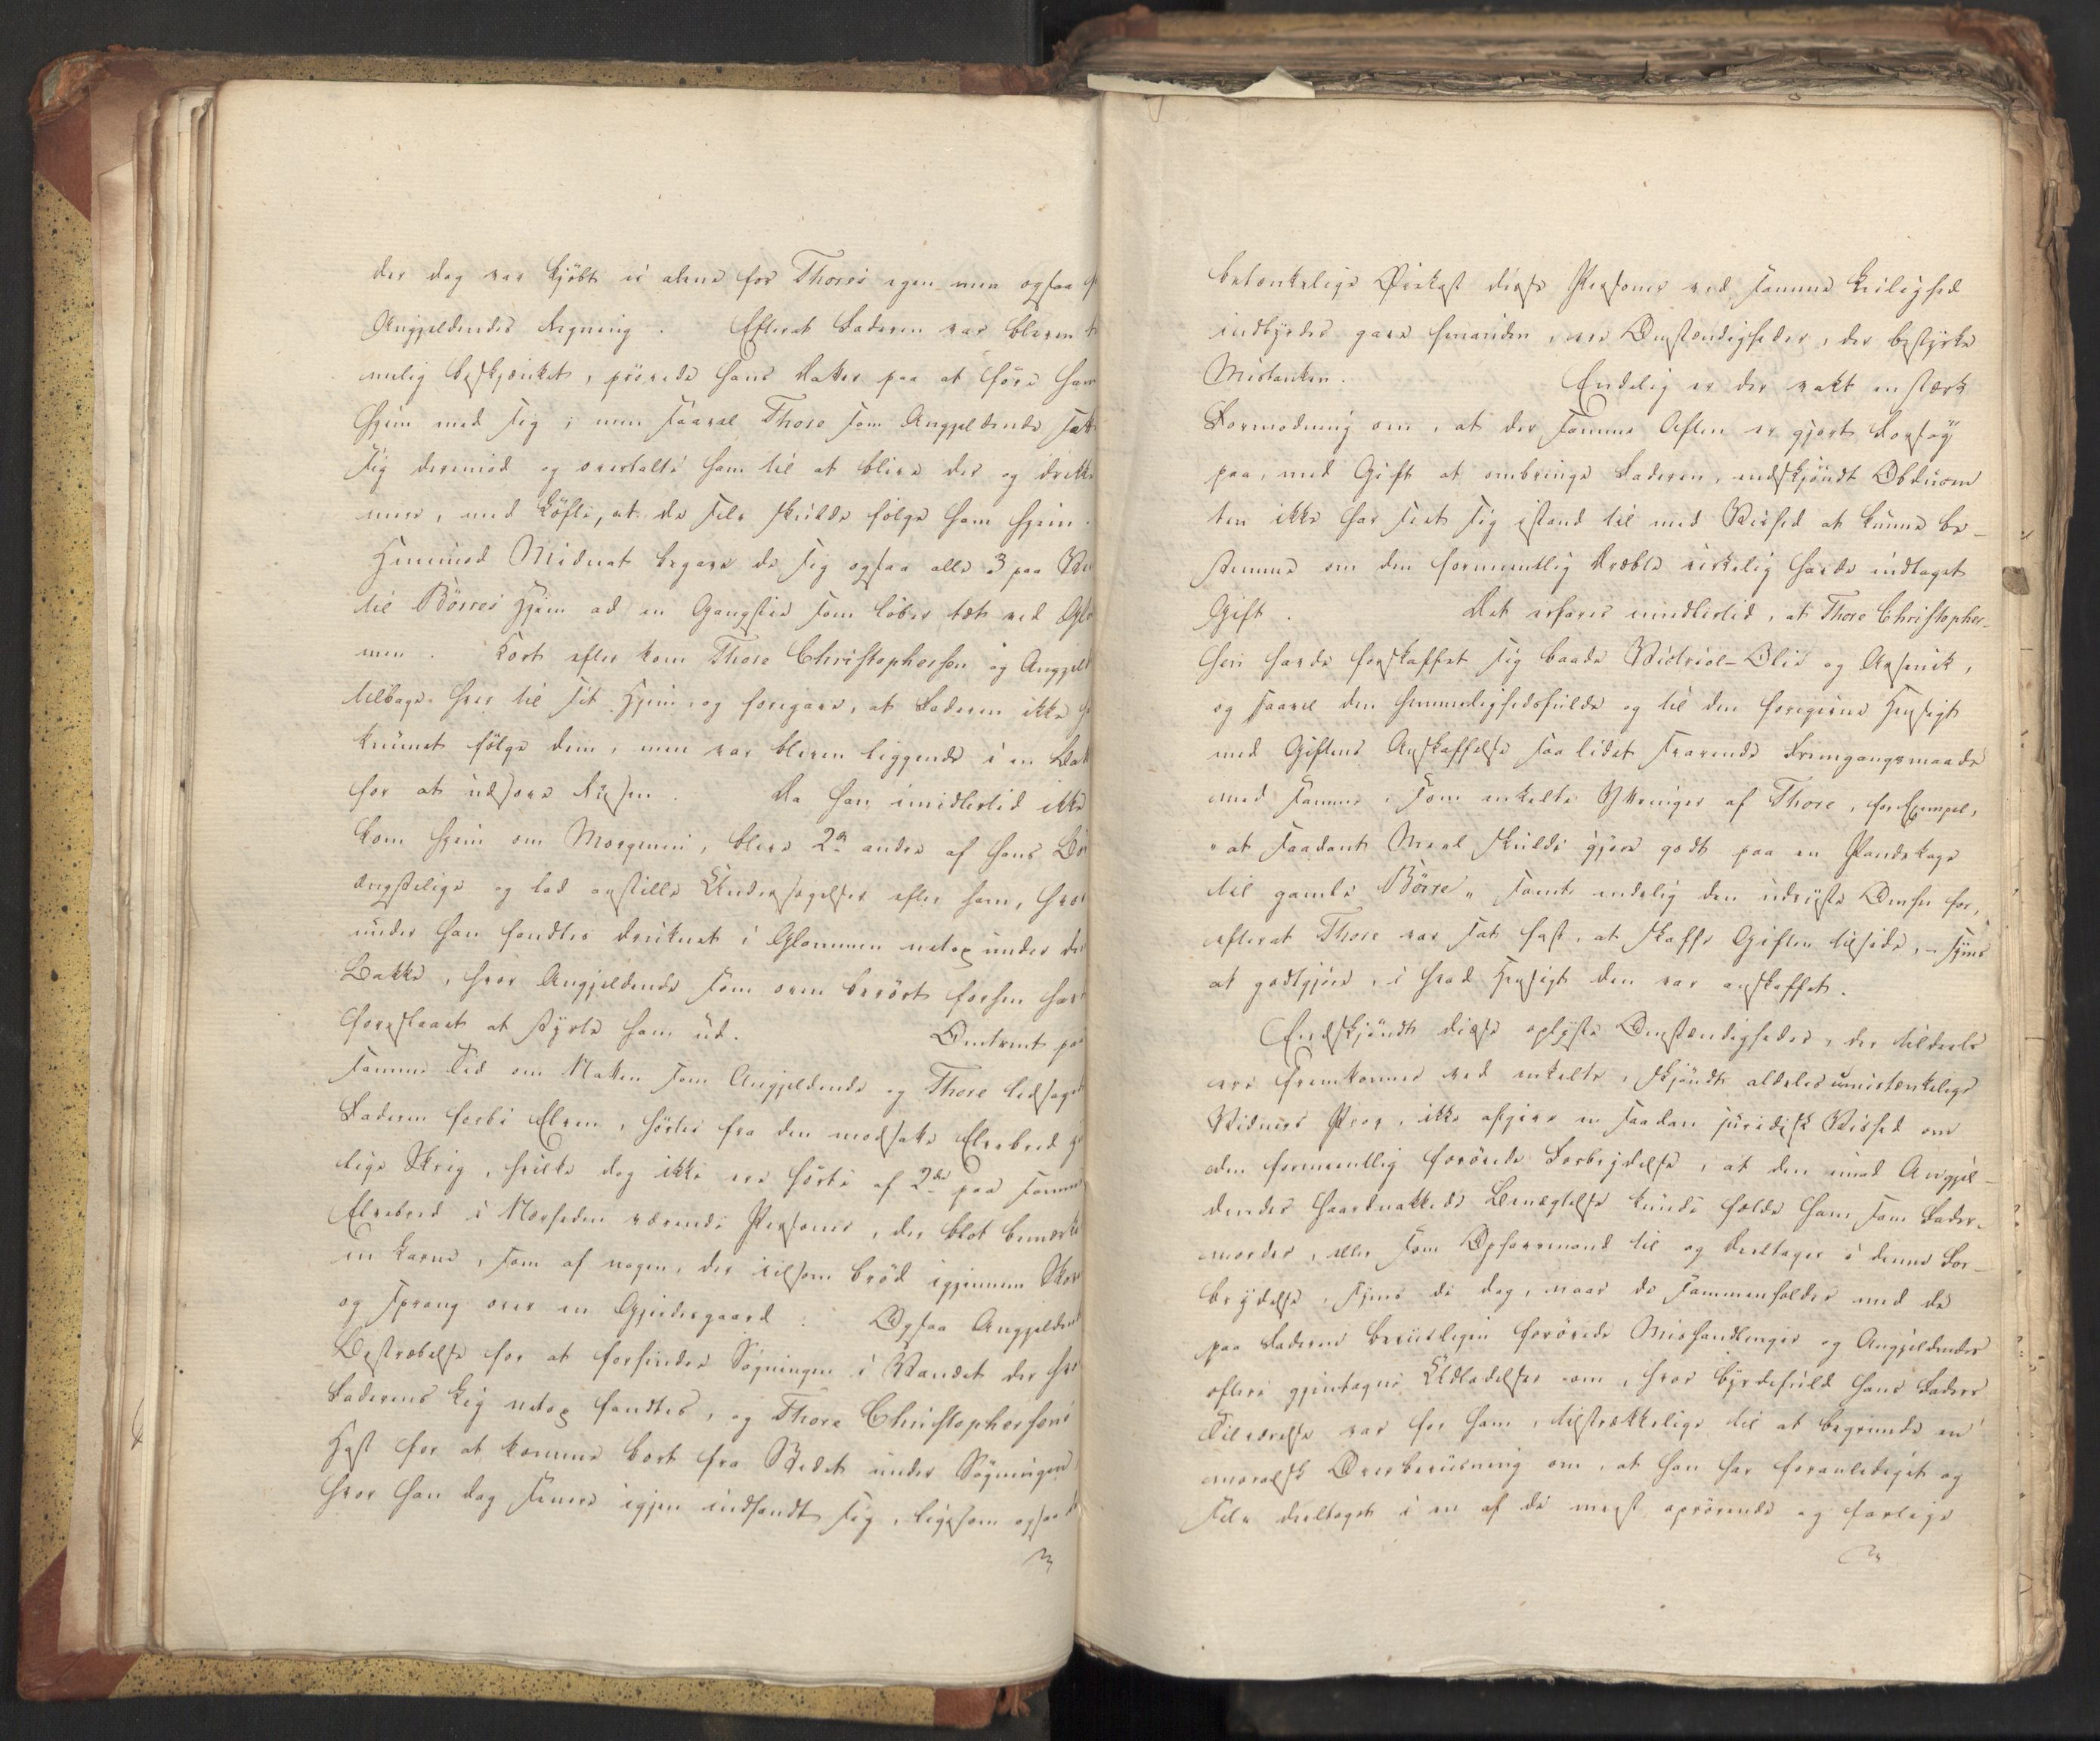 der dog var kjöbt ei alene for Thores egen men ogsaa
Angjeldendes Regning. Efterat Faderen var bleven
melig beskjænket, prövede hans Datter paa at före ham
hjem med sig; men saavel Thore som Angjeldende satte
sig derimod og overtalte ham til at blive der og drikke
mere, med Löfte, at de selv skulde fölge ham hjem.
Henimod Midnat begave de sig ogsaa alle 3 paa Vei
til Börres Hjem ad en Gangstie som löber tæt ved Glo
men. Kort efter kom Thore Christophersen og Angjeld
tilbage hver til sit Hjem, og foregave, at Faderen ikke
kunnet fölge dem, men var bleven liggende i en Bak
for at udsove Rusen. Da han imidlertid ikke
kom hjem om Morgenen, bleve 2de andre af hans Bö
ængstelige og lod anstille Undersögelser efter ham, hvor
under han fandtes druknet i Glommen netop under de
Bakke, hvor Angjeldende som oven berört forhen hav
foreslaaet at styrte ham ud. Omtrent paa
samme Tid om Natten som Angjeldende og Thore ledsaged
Faderen forbi Elven, hörtes fra den modsatte Elvebred
lige Skrig, hvilke dog ikke ere hörte af 2de paa samme
Elvebred i Nærheden værende Personer, der blot bemærke
en Larm, som af nogen, der voldsom bröd igjennem Skov
og sprang over en Gjerdesgaard. Ogsaa Angjeldend
Bestræbelse for at forhindre Sögningen i Vandet der hvor
Faderens Liig netop fandtes, og Thore Christophersens
Hast for at komme bort fra Stedet under Sögningen,
hvor han dog senere igjen indfandt sig, ligesom ogsaa
betænkelige Öiekast disse Personer ved samme Leilighed
indbyrdes gave hinanden, ere Omstændigheder, der bestyrke
Mistanken. Endelig er der vakt en stærk
Formodning om, at der samme Aften er gjort Forsög
paa, med Gift at ombringe Faderen, endskjöndt Obducen
ten ikke har seet sig istand til med Vished at kunne be-
stemme om den formeentlig Dræbte virkelig havde indtaget
Gift. Det erfares imidlertid, at Thore Christopher-
sen havde forskaffet sig baade Vietriol-Olie og Arsenik,
og saavel den hemmelighedsfulde og til den foregivne Hensigt
med Giftens Anskaffelse saa lidet svarende Fremgangsmaade
med samme, som enkelte Yttringer af Thore, for Exempel,
"at saadant Meel skulde gjöre godt paa en Pandekage
til gamle Börre" samt endelig den udviste Omhu for,
efterat Thore var sat fast, at skaffe Giften tilside, - synes
at godtgjöre, i hvad Hensigt den var anskaffet.
Endskjöndt disse oplyste Omstændigheder, der tildeels
ere fremkomne ved enkelte, skjöndt aldeles umistænkelige
Vidners Prov, ikke afgive en saadan juridisk Vished om
den formeentlig forövede Forbrydelse, at den imod Angjel-
dendes haardnakkede Benægtelse kunde fælde ham som Fader-
morder, eller som Ophavsmand til og Deeltager i denne For-
brydelse, synes de dog, naar de sammenholdes med de
paa Faderen beviisligen forövede Mishandlinger og Angjeldendes
oftere gjentagne Udladelser om, hvor byrdefuld hans Faders
Tilværelse var for ham, tilstrækkelige til at begrunde en
moralsk Overbeviisning om, at han har foranlediget og
selv deeltaget i en af de meest oprörende og farlige